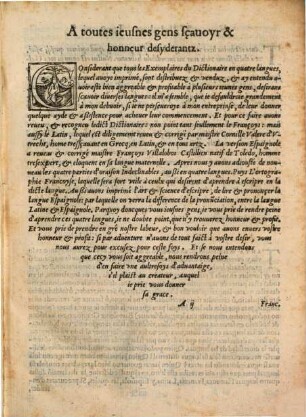 A toutes ieusnes gens sçauoyr &
honneur desyderantz.
Considerant que tous les Exemplaires du Dictionnaire en quatre langues,
lequel auoye imprimé, sont distribuez & venduz, & ay entendu
auoir esté bien aggreable & profitable à plusieurs ieunes gens, desirans
sçauoir diuerses langues d'vn à l'autre, qui se desauoueroient grandement
à mon debuoir, si ie ne perseueroye à mon entreprinse, de leur donner
quelque ayde & assistence pour acheuer leur commencement. Et pource ie faict auons
reueu & recogneu ledict Dictionnaire: non point tant seullement le François: mais
aussy le Latin, lequel est diligement reueu & corrigé par maistre Cornille Valere d'V-
trecht, home tressçauant en Grec, en Latin, & en tous artz. La version Espaignole
a reueu & corrigé maistre François Villalobos Castillien natif de Toledo, homme
tresexpert, & eloquent en sa langue maternelle. Apres nous y auons adiousté de nou-
ueau les quatre parties d'oraison Indeclinables, aussi en quatre langues. Puis l'ortogra-
phie Françoyse, laquelle sera fort vtile à ceulx qui desirent d'aprendre à escripre en
la dicte langue. Aussi auons imprimé l'Art & sciente d'escripre, de lire & prononcer la
langue Espaignole: par laquelle on verra la difference de la pronontiation, entre la langue
Latine & Espaignole. Parquoy doncques vous ieusnes gens, ie vous prie de rendre peine
d'aprendre ces quatre langues, ie ne doubte point, que n'y trouuerez honneur & profit.
Et vous prie de prendre en gré nostre labeur, & bon vouloir que auons enuers vostre
honneur & profit: si par aduenture n'auons de tout faict à vostre desir, vous
nous aurez pour excusez pour ceste foys. Et se nous entendons
que cecy vous soit aggreable, nous rendrons peine
d'en faire vne aultresfoys d'aduantaige,
s'il plaict au createur, auquel
ie prie vous donner
sa grace.
A ij Franc.